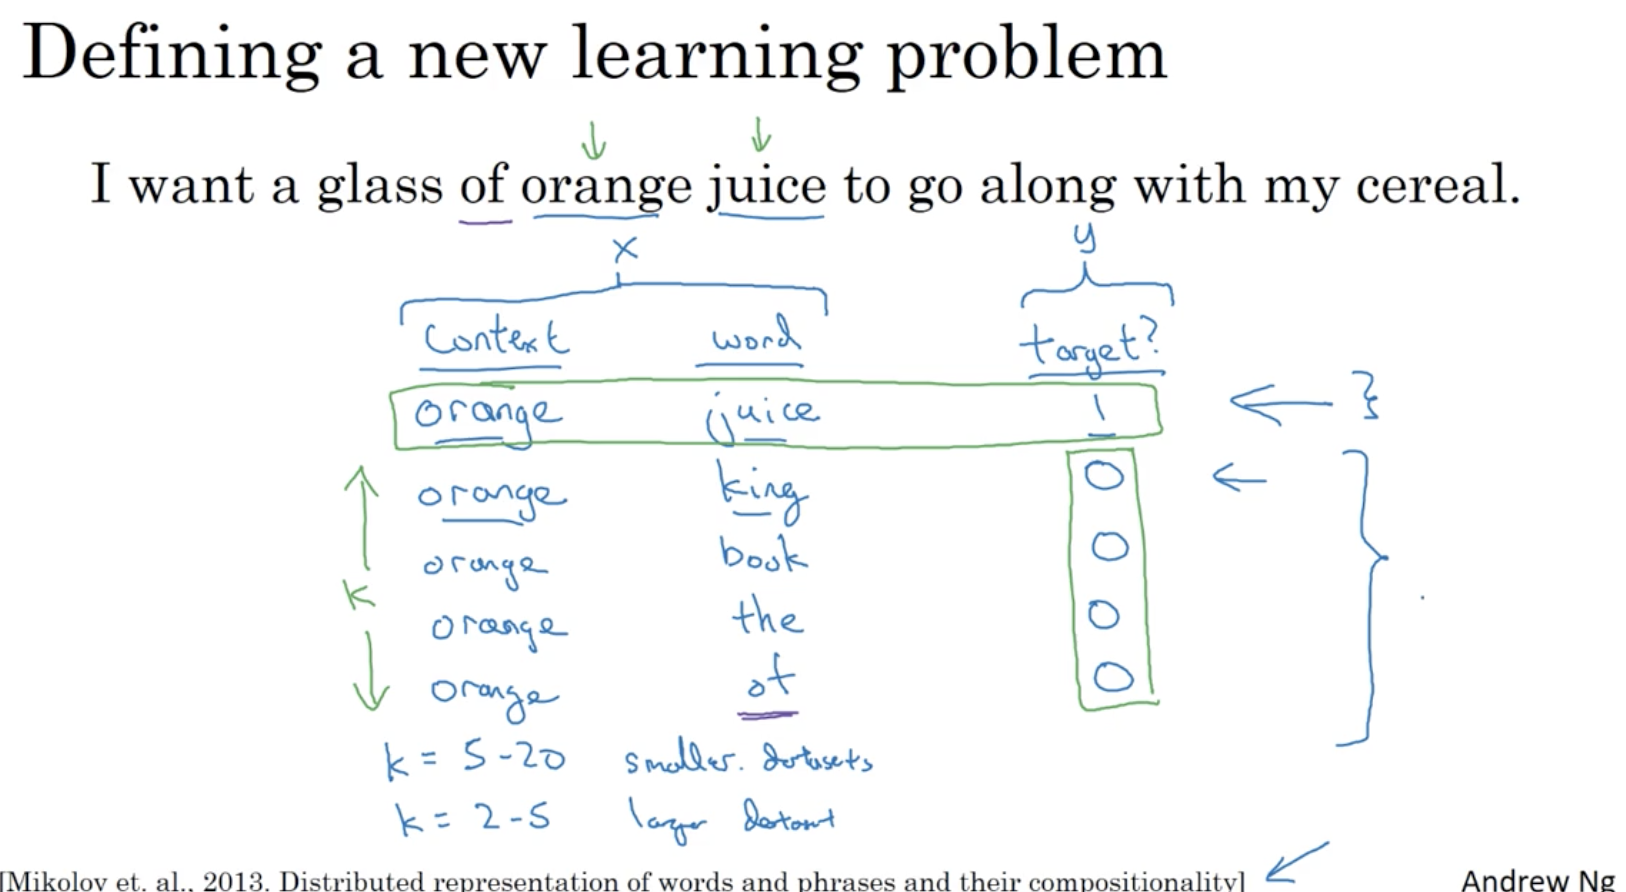 Defining a new learning problem
I want a glass of orange juice to go along with my cereal.
x y
context word target?
orange juice 1
orange king 0
orange book 0
orange the 0
orange of 0
k
k = 5-20 smaller. datasets
k = 2-5 larger dataset
[Mikolov et. al., 2013. Distributed representation of words and phrases and their compositionality]
Andrew Ng